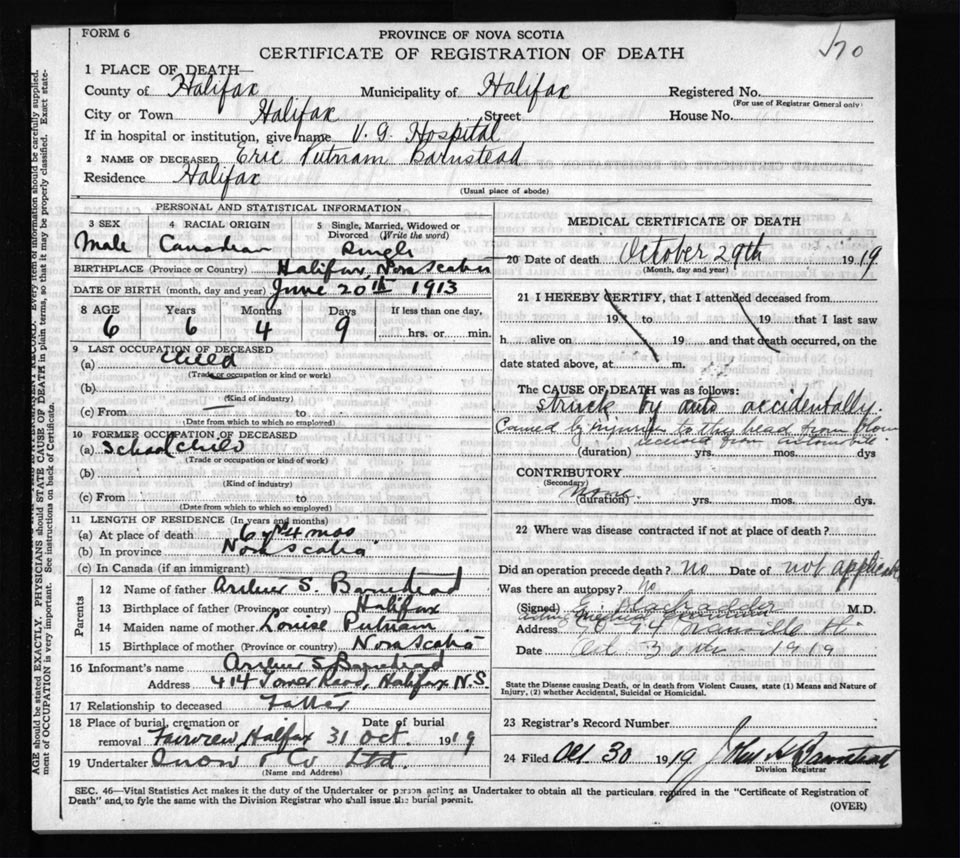 FORM 6
PROVINCE OF NOVA SCOTIA
CERTIFICATE OF REGISTRATION OF DEATH
1 PLACE OF DEATH—
County of Halifax Municipality of Halifax Registered No.
(For use of Registrar General only)
City or Town Halifax Street House No.
If in hospital or institution, give name V. G. Hospital
2 NAME OF DECEASED Eric Putnam Barnstead
Residence Halifax
(Usual place of abode)
PERSONAL AND STATISTICAL INFORMATION
3 SEX 4 RACIAL ORIGIN 5 Single, Married, Widowed or Divorced (Write the word)
Male Canadian Single
BIRTHPLACE (Province or Country) Halifax, Nova Scotia
DATE OF BIRTH (month, day and year) June 20th 1913
8 AGE Years Months Days If less than one day,
6 6 4 9 hrs. or min.
9 LAST OCCUPATION OF DECEASED
(a) Child
(Trade or occupation or kind or work)
(b)
(Kind of industry)
(c) From
(Date from which to which so employed)
10 FORMER OCCUPATION OF DECEASED
(a) School child
(Trade or occupation or kind or work)
(b)
(Kind of industry)
(c) From
(Date from which to which so employed)
11 LENGTH OF RESIDENCE (In years and months)
(a) At place of death 6 yrs 4 mos
(b) In province Nova Scotia
(c) In Canada (if an immigrant)
Parents
12 Name of father Arthur S. Barnstead
13 Birthplace of father (Province or country) Halifax
14 Maiden name of mother Louise Putnam
15 Birthplace of mother (Province or country) Nova Scotia
16 Informant's name Arthur S. Barnstead
Address 414 Tower Road, Halifax N.S.
17 Relationship to deceased Father
18 Place of burial, cremation or removal Fairview, Halifax Date of burial 31 Oct. 1919
19 Undertaker Snow & Co Ltd.
(Name and Address)
MEDICAL CERTIFICATE OF DEATH
20 Date of death October 29th 1919
(Month, day and year)
21 I HEREBY CERTIFY, that I attended deceased from
19 to 19 that I last saw
h alive on 19 and that death occurred, on the
date stated above, at m.
The CAUSE OF DEATH was as follows:
struck by auto accidentally.
Caused by injuries to the head from blow
received from automobile
(duration) yrs. mos. dys
CONTRIBUTORY
(Secondary)
None
(duration) yrs. mos. dys.
22 Where was disease contracted if not at place of death?
Did an operation precede death? no Date of not applicable
Was there an autopsy? No
(Signed) M.D.
Address
Date Oct. 30th 1919
State the Disease causing Death, or in death from Violent Causes, state (1) Means and Nature of Injury, (2) whether Accidental, Suicidal or Homicidal.
23 Registrar's Record Number
24 Filed Oct. 30 1919 John H Barnstead
Division Registrar
SEC. 46—Vital Statistics Act makes it the duty of the Undertaker or person acting as Undertaker to obtain all the particulars required in the "Certificate of Registration of
Death" and to fyle the same with the Division Registrar who shall issue the burial permit.
(OVER)